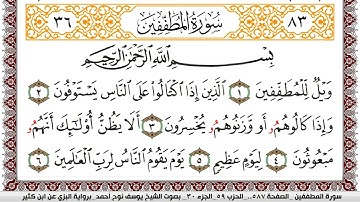 ٨٣ سُورَةُ المُطَفِّفِينَ ٣٦
بِسْمِ اللَّهِ الرَّحْمَٰنِ الرَّحِيمِ
وَيْلٌ لِّلْمُطَفِّفِينَ ١ الَّذِينَ إِذَا اكْتَالُوا عَلَى النَّاسِ يَسْتَوْفُونَ ٢
وَإِذَا كَالُوهُمُۥ أَو وَّزَنُوهُمُۥ يُخْسِرُونَ ٣ أَلَا يَظُنُّ أُوْلَٰٓئِكَ أَنَّهُمُۥ
مَبْعُوثُونَ ٤ لِيَوْمٍ عَظِيمٍ ٥ يَوْمَ يَقُومُ النَّاسُ لِرَبِّ الْعَٰلَمِينَ ٦
سورة المطففين _ الصفحة ٥٨٧.. الحزب ٥٩ .الجزء ٣٠ . بصوت الشيخ يوسف نوح أحمد .برواية البزي عن ابن كثير